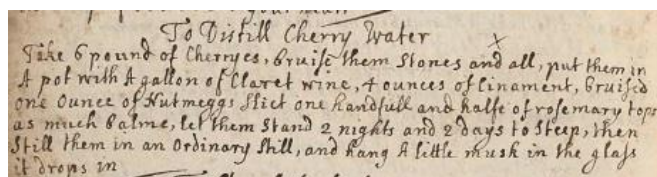 To Distill Cherry Water
Take 6 pound of Cherryes, bruise them Stones and all, put them in
A pot with A gallon of Claret wine, 4 ounces of Cinament, bruised
one Ounce of Nutmeggs Slict one handfull and halfe of rosemary tops
as much balme, let them Stand 2 nights and 2 days to Steep, then
Still them in an Ordinary Still, and hang A little musk in the glass
it drops in